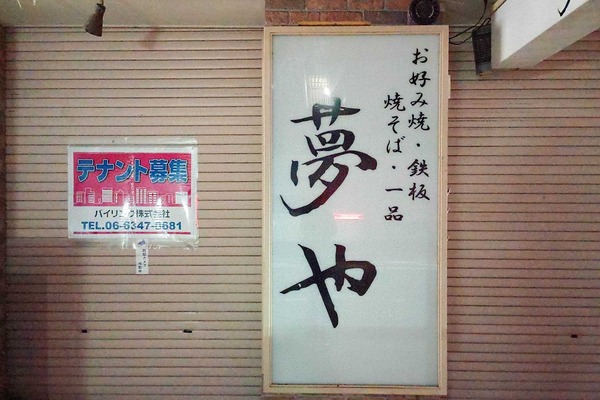 お好み焼・鉄板
焼そば・一品
夢や
テナント募集
バイリンク株式会社
TEL.06-6347-5681